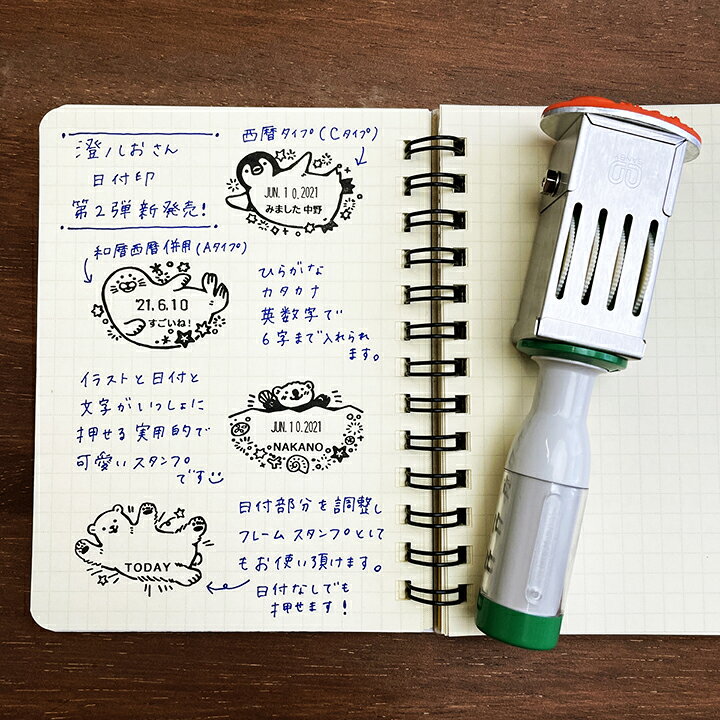 澄ノしおさん
日付印
第2弾新発売!
西暦タイプ(Cタイプ)
JUN. 10.2021
みました 中野
和暦西暦併用(Aタイプ)
21.6.10
すごいね!
ひらがな
カタカナ
英数字で
6字まで入れられ
ます。
イラストと日付と
文字がいっしょに
押せる実用的で
可愛いスタンプ
です
JUN. 10.2021
NAKANO
TODAY
日付部分を調整し
フレームスタンプとして
もお使い頂けます。
日付なしでも
押せます!